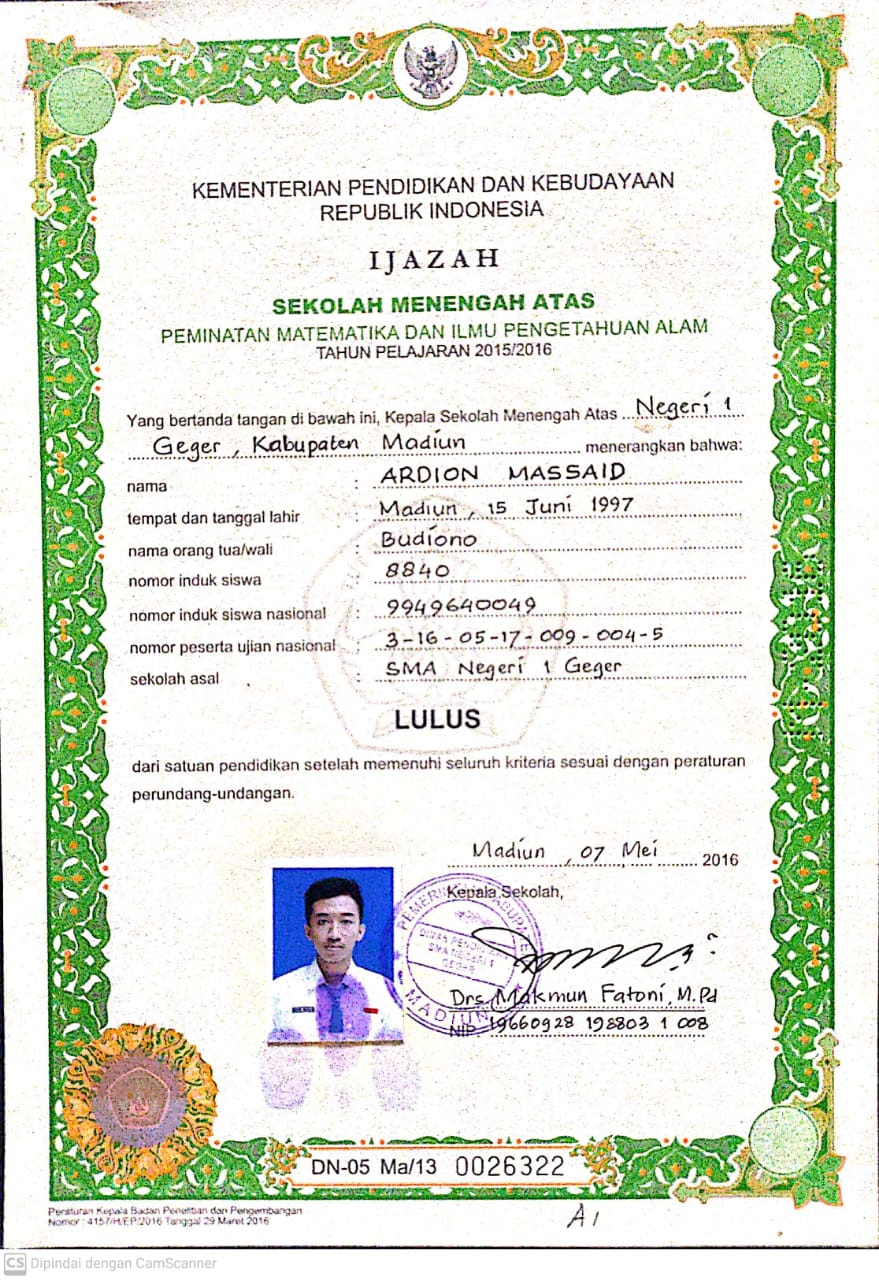 KEMENTERIAN PENDIDIKAN DAN KEBUDAYAAN
REPUBLIK INDONESIA
IJAZAH
SEKOLAH MENENGAH ATAS
PEMINATAN MATEMATIKA DAN ILMU PENGETAHUAN ALAM
TAHUN PELAJARAN 2015/2016
Yang bertanda tangan di bawah ini, Kepala Sekolah Menengah Atas Negeri 1
Geger, Kabupaten Madiun menerangkan bahwa:
nama : ARDION MASSAID
tempat dan tanggal lahir : Madiun, 15 Juni 1997
nama orang tua/wali : Budiono
nomor induk siswa : 8840
nomor induk siswa nasional : 9949640049
nomor peserta ujian nasional : 3-16-05-17-009-004-5
sekolah asal : SMA Negeri 1 Geger
LULUS
dari satuan pendidikan setelah memenuhi seluruh kriteria sesuai dengan peraturan
perundang-undangan.
Madiun, 07 Mei 2016
Kepala Sekolah,
DINAS PENDIDIKAN
SMA NEGERI 1
GEGER
MADIUN
Drs. Makmun Fatoni, M.Pd
NIP. 19660928 198803 1 008
DN-05 Ma/13 0026322
Peraturan Kepala Badan Penelitian dan Pengembangan
Nomor : 4157/H/EP/2016 Tanggal 29 Maret 2016
A1
CS Dipindai dengan CamScanner